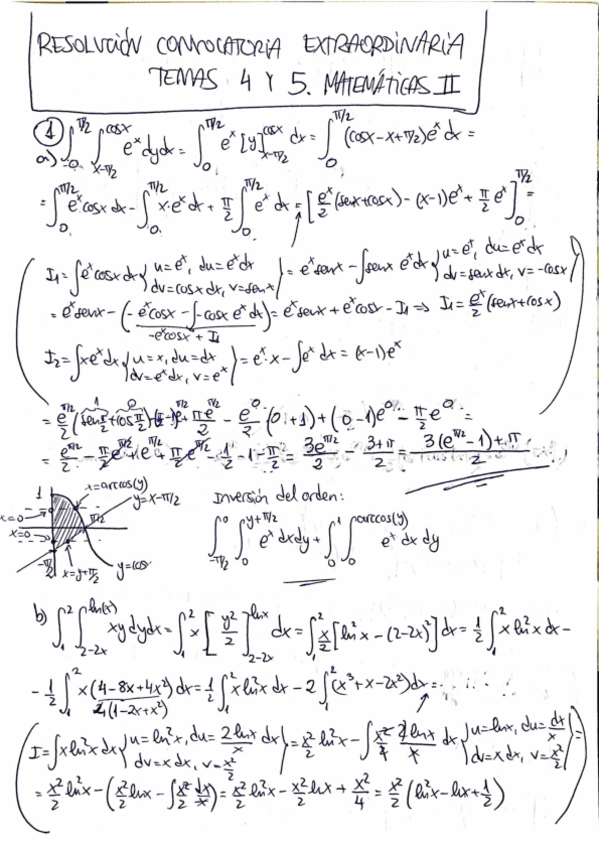 RESOLUCIÓN CONVOCATORIA EXTRAORDINARIA
TEMAS 4 Y 5. MATEMÁTICAS II
① a) ∫₀^{π/2} ∫_{x-π/2}^{cosx} eˣ dy dx = ∫₀^{π/2} eˣ [y]_{x-π/2}^{cosx} dx = ∫₀^{π/2} (cosx - x + π/2) eˣ dx =
= ∫₀^{π/2} eˣ cosx dx - ∫₀^{π/2} x·eˣ dx + π/2 ∫₀^{π/2} eˣ dx = [eˣ/2 (senx+cosx) - (x-1)eˣ + π/2 eˣ]₀^{π/2} =
I₁ = ∫eˣ cosx dx {u=eˣ, du=eˣdx
dv=cosx dx, v=senx} = eˣ senx - ∫senx eˣ dx {u=eˣ, du=eˣdx
dv=senx dx, v=-cosx}
= eˣ senx - (-eˣ cosx - ∫-cosx eˣ dx) = eˣ senx + eˣ cosx - I₁ ⇒ I₁ = eˣ/2 (senx+cosx)
-eˣ cosx + I₁
I₂ = ∫xeˣ dx {u=x, du=dx
dv=eˣdx, v=eˣ} = eˣ·x - ∫eˣ dx = (x-1)eˣ
1 0
= e^{π/2}/2 (sen π/2 + cos π/2) - (π/2 -1)e^{π/2} + π/2 e^{π/2} - e⁰/2 (0+1) + (0-1)e⁰ - π/2 e⁰ =
= e^{π/2}/2 - π/2 e^{π/2} + e^{π/2} + π/2 e^{π/2} - 1/2 - 1 - π/2 = 3e^{π/2}/2 - (3+π)/2 = (3(e^{π/2} - 1) + π)/2
1
x=arccos(y)
y=x-π/2
x=0
π/2
x=0
-π/2
x=y+π/2
y=cos
Inversión del orden:
∫_{-π/2}^{0} ∫₀^{y+π/2} eˣ dx dy + ∫₀^{1} ∫₀^{arccos(y)} eˣ dx dy
b) ∫₁² ∫_{2-2x}^{ln(x)} xy dy dx = ∫₁² x [y²/2]_{2-2x}^{lnx} dx = ∫₁² x/2 [ln²x - (2-2x)²] dx = 1/2 ∫₁² x ln²x dx -
- 1/2 ∫₁² x (4-8x+4x²) dx = 1/2 ∫₁² x ln²x dx - 2 ∫₁² (x³+x-2x²) dx =
4(1-2x+x²)
I = ∫x ln²x dx {u=ln²x, du=2lnx/x dx
dv=x dx, v=x²/2} = x²/2 ln²x - ∫x²/2 2lnx/x dx {u=lnx, du=dx/x
dv=x dx, v=x²/2} =
= x²/2 ln²x - (x²/2 lnx - ∫x²/2 dx/x) = x²/2 ln²x - x²/2 lnx + x²/4 = x²/2 (ln²x - lnx + 1/2)